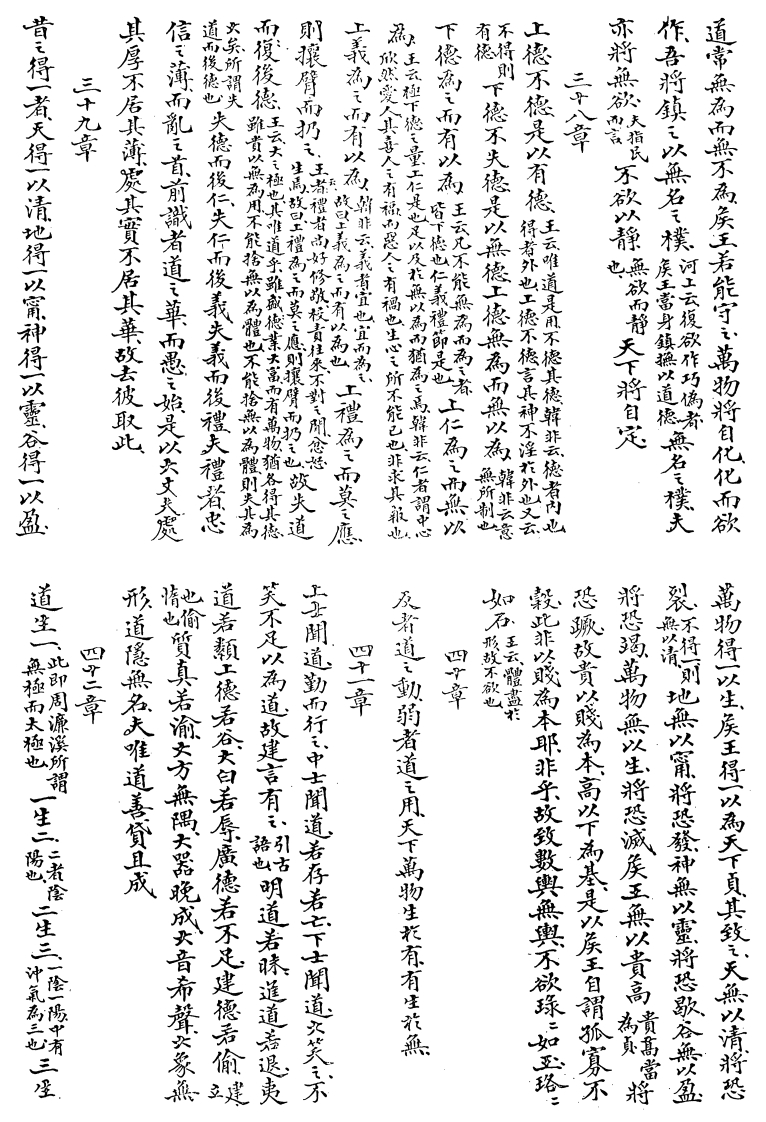 道常無為而無不為、矦王若能守之、萬物將自化、化而欲
作、吾將鎮之以無名之樸、河上云復欲作巧偽者矦王當身鎮撫以道德、無名之樸、夫
亦將無欲、夭指民而言、不欲以靜、無欲而靜也、天下將自定、
三十八章
上德不德、是以有德、王云唯道是用不德其德、韓非云、德者內也得者外也、上德不德言其神不淫於外也、又云不得則有德、
下德不失德、是以無德、上德無為而無以為、韓非云意無所制也、
下德為之而有以為、王云凡不能無為而為之者皆下德也、仁義禮節是也、上仁為之而無以
為、王云極下德之量、上仁是也、足以及於無以為而猶為之焉、韓非云、仁者謂中心欣然愛人、其喜人之有福而惡人之有禍也、生心之所不能已也、非求其報也、
上義為之而有以為、韓非云、義者宜也、宜而為之、故曰上義為之而有以為也、上禮為之而莫之應、
則攘臂而扔之、王者禮者尚好修敬、校責往來、不對之間、忿怒生焉、故曰上禮為之而莫之應、則攘臂而扔之也、故失道
而復後德、王云、大之極也、其唯道乎、雖盛德業大富而有萬物、猶各得其德、雖貴以無為用、不能捨無以為體也、不能捨無以為體、則失其為大矣、所謂失道而後德也、
失德而後仁、失仁而後義、失義而後禮、夫禮者忠
信之薄、而亂之首、前識者道之華、而愚之始、是以大丈夫處
其厚、不居其薄、處其實、不居其華、故去彼取此、
三十九章
昔之得一者、天得一以清、地得一以甯、神得一以靈、谷得一以盈、
萬物得一以生、矦王得一以為天下貞、其致之、天無以清、將恐
裂、不得一則無以清、地無以甯、將恐發、神無以靈、將恐歇、谷無以盈、
將恐竭、萬物無以生、將恐滅、矦王無以貴高、貴高當為貞、將
恐蹶、故貴以賤為本、高以下為基、是以矦王自謂孤寡不
穀、此非以賤為本耶、非乎、故致數輿無輿、不欲琭〻如玉、珞〻
如石、王云、體盡於形、故不欲也、
四十章
反者道之動、弱者道之用、天下萬物生於有、有生於無、
四十一章
上士聞道、勤而行之、中士聞道、若存若亡、下士聞道、大笑之、不
笑不足以為道、故建言有之、引古語也、明道若昧、進道若退、夷
道若纇、上德若谷、大白若辱、廣德若不足、建德若偷、建立也偷惰也、
質真若渝、大方無隅、大器晚成、大音希聲、大象無
形、道隱無名、夫唯道善貸且成
四十二章
道生一、此即周濂溪所謂無極而太極也、一生二、二者陰陽也、二生三、一陰一陽、中有沖氣為三也、三生